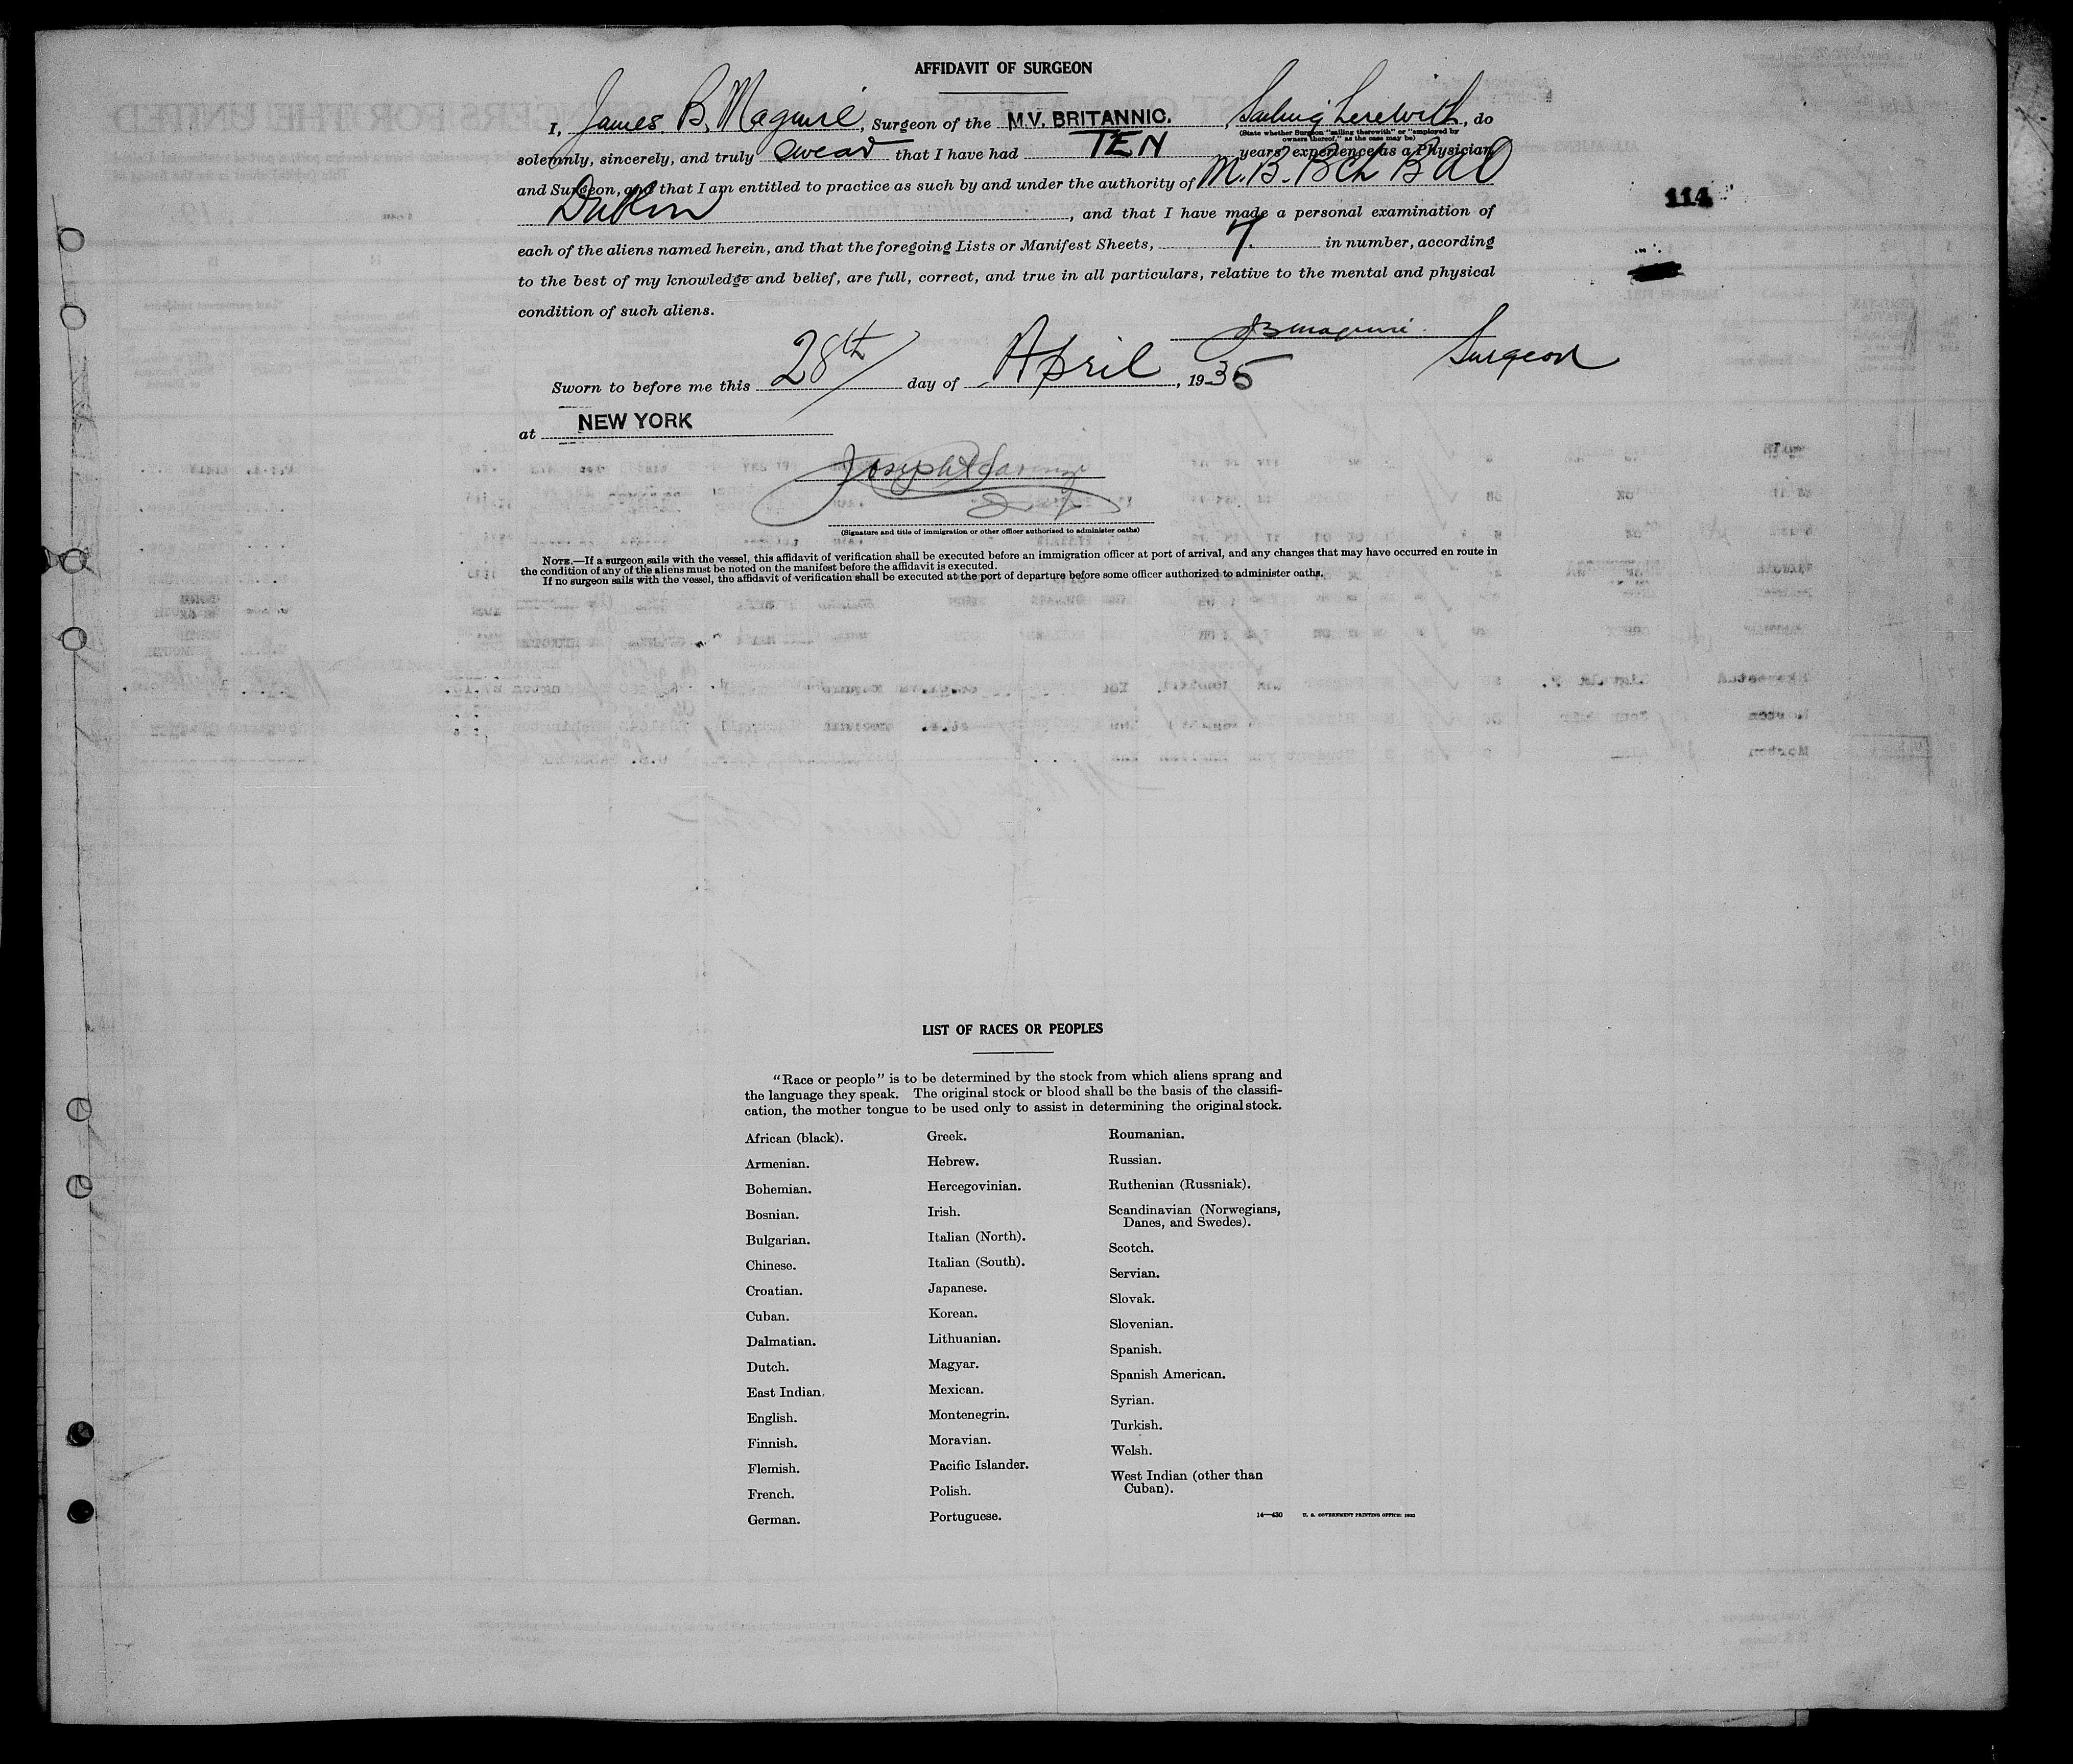 AFFIDAVIT OF SURGEON
I, James B. Maguire, Surgeon of the M.V. BRITANNIC., Sailing therewith, do
(State whether Surgeon "sailing therewith" or "employed by
owners thereof," as the case may be)
solemnly, sincerely, and truly swear that I have had TEN years' experience as a Physician
and Surgeon, and that I am entitled to practice as such by and under the authority of M.B. BCh BAO
Dublin, and that I have made a personal examination of
114
each of the aliens named herein, and that the foregoing Lists or Manifest Sheets, 7. in number, according
to the best of my knowledge and belief, are full, correct, and true in all particulars, relative to the mental and physical
condition of such aliens.
JB Maguire
Surgeon
Sworn to before me this 28th day of April, 1935
at NEW YORK
Joseph
(Signature and title of immigration or other officer authorized to administer oaths)
NOTE.—If a surgeon sails with the vessel, this affidavit of verification shall be executed before an immigration officer at port of arrival, and any changes that may have occurred en route in
the condition of any of the aliens must be noted on the manifest before the affidavit is executed.
If no surgeon sails with the vessel, the affidavit of verification shall be executed at the port of departure before some officer authorized to administer oaths.
LIST OF RACES OR PEOPLES
"Race or people" is to be determined by the stock from which aliens sprang and
the language they speak. The original stock or blood shall be the basis of the classifi-
cation, the mother tongue to be used only to assist in determining the original stock.
African (black).
Armenian.
Bohemian.
Bosnian.
Bulgarian.
Chinese.
Croatian.
Cuban.
Dalmatian.
Dutch.
East Indian.
English.
Finnish.
Flemish.
French.
German.
Greek.
Hebrew.
Hercegovinian.
Irish.
Italian (North).
Italian (South).
Japanese.
Korean.
Lithuanian.
Magyar.
Mexican.
Montenegrin.
Moravian.
Pacific Islander.
Polish.
Portuguese.
Roumanian.
Russian.
Ruthenian (Russniak).
Scandinavian (Norwegians,
Danes, and Swedes).
Scotch.
Servian.
Slovak.
Slovenian.
Spanish.
Spanish American.
Syrian.
Turkish.
Welsh.
West Indian (other than
Cuban).
14—430 U. S. GOVERNMENT PRINTING OFFICE: